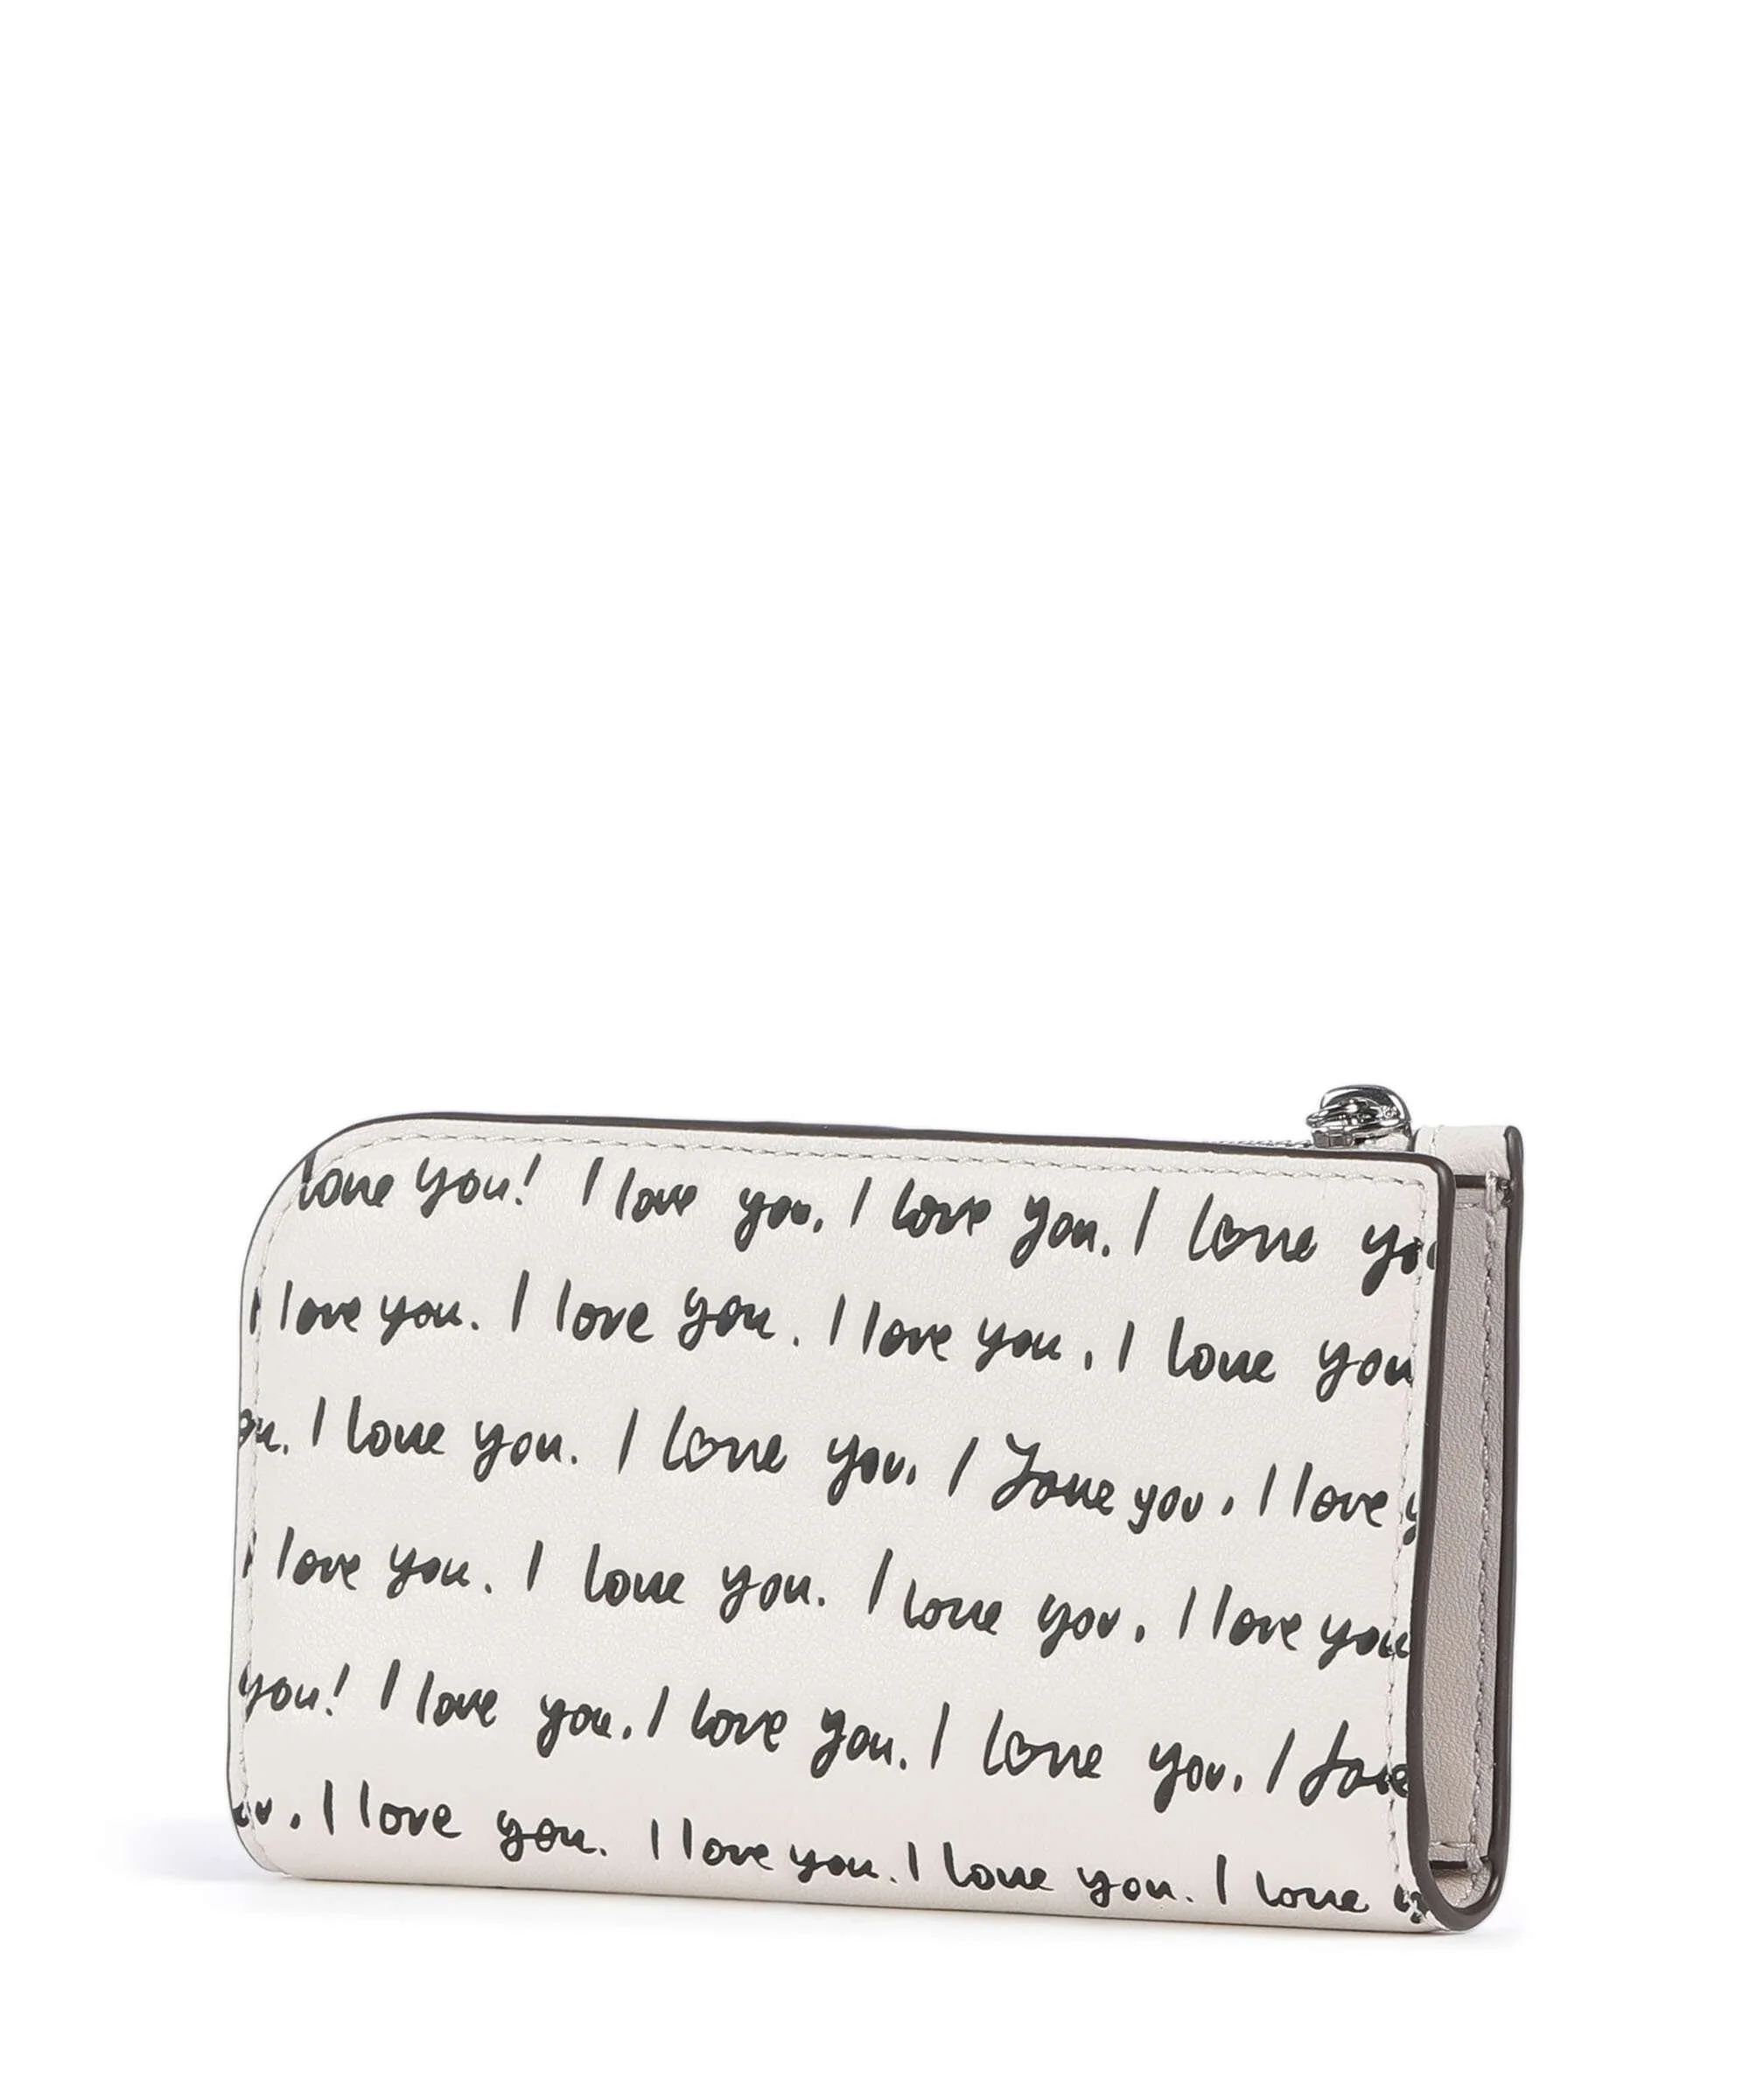 love you! I love you. I love you. I love yo
I love you. I love you. I love you. I love you
ou. I love you. I love you. I love you. I love y
I love you. I love you. I love you. I love you
you! I love you. I love you. I love you. I love
I love you. I love you. I love you. I love